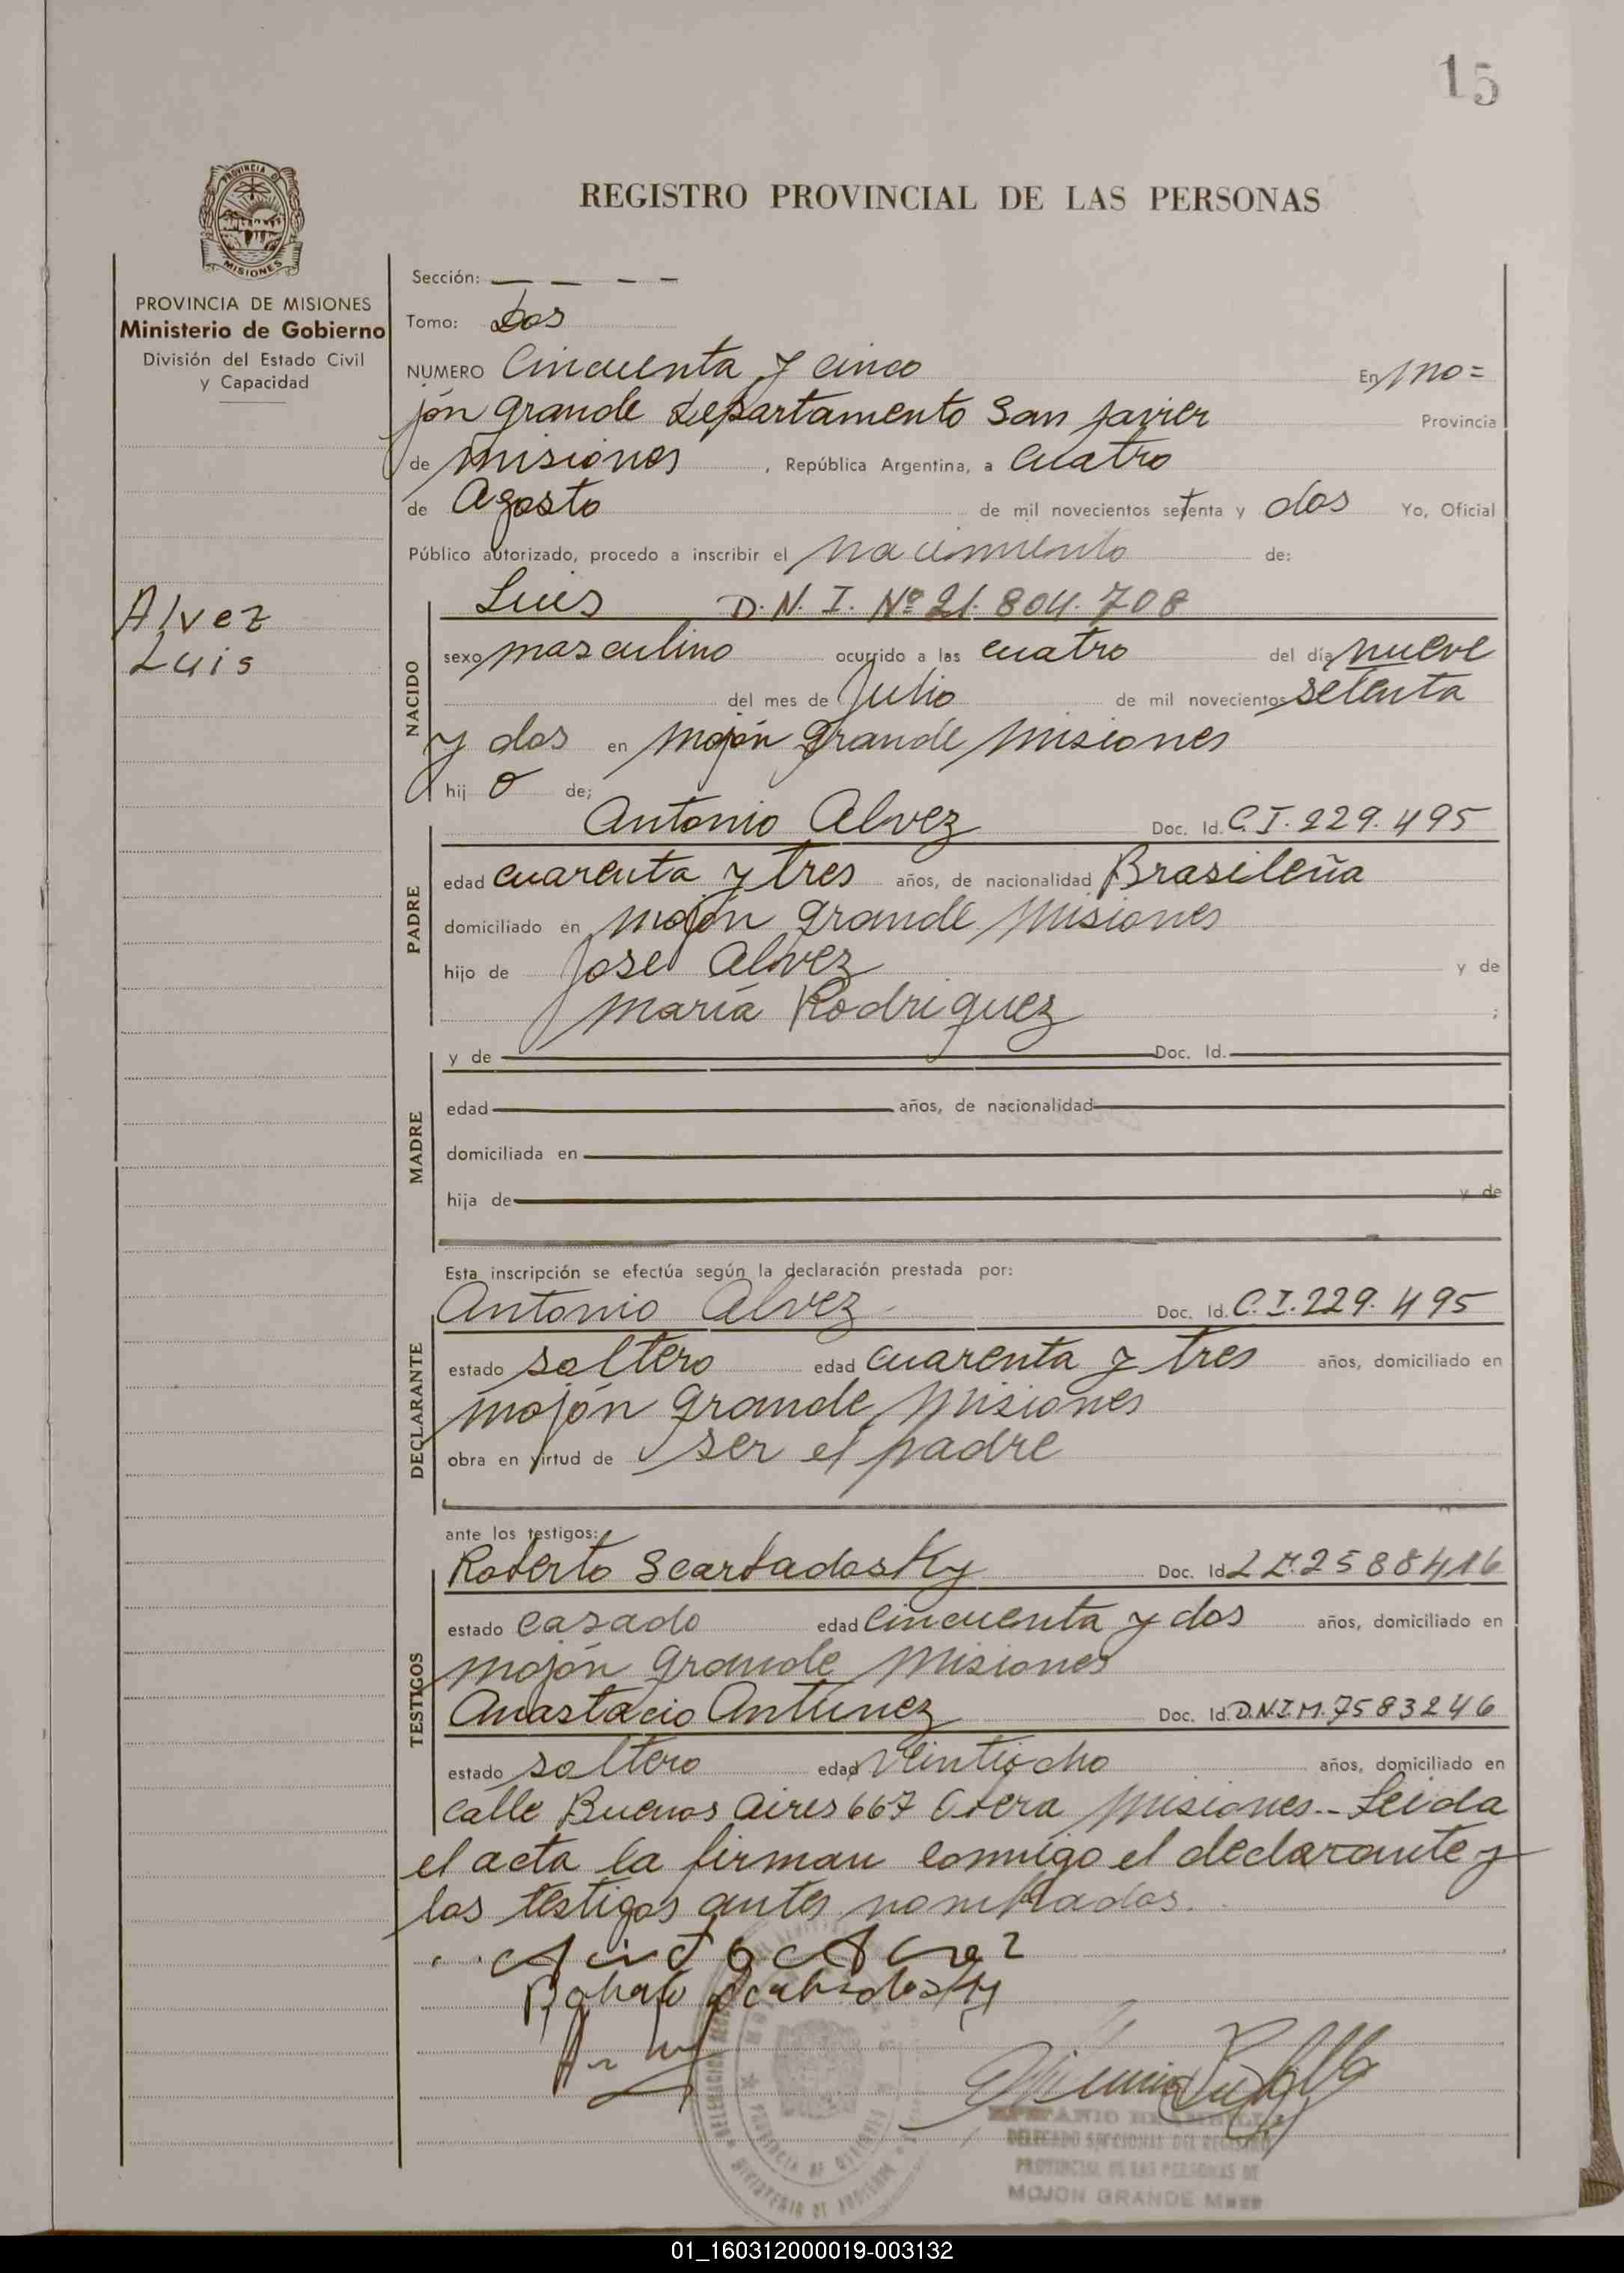 15
PROVINCIA DE
MISIONES
REGISTRO PROVINCIAL DE LAS PERSONAS
PROVINCIA DE MISIONES
Ministerio de Gobierno
División del Estado Civil
y Capacidad
Alvez
Luis
Sección: — — — —
Tomo: Dos
NUMERO Cincuenta y cinco En Mo=
jón grande Departamento San Javier Provincia
de Misiones, República Argentina, a Cuatro
de Agosto de mil novecientos setenta y dos Yo, Oficial
Público autorizado, procedo a inscribir el nacimiento de:
NACIDO
Luis D.N.I. Nº 21.804.708
sexo masculino ocurrido a las cuatro del día nueve
del mes de Julio de mil novecientos setenta
y dos en Mojón grande Misiones
hij o de;
PADRE
Antonio Alvez Doc. Id. C.I. 229.495
edad cuarenta y tres años, de nacionalidad Brasileña
domiciliado en Mojón grande Misiones
hijo de José Alvez y de
María Rodriguez ;
MADRE
y de Doc. Id.
edad años, de nacionalidad
domiciliada en
hija de y de
Esta inscripción se efectúa según la declaración prestada por:
DECLARANTE
Antonio Alvez Doc. Id. C.I. 229.495
estado soltero edad cuarenta y tres años, domiciliado en
Mojón grande Misiones
obra en virtud de ser el padre
ante los testigos:
TESTIGOS
Roberto Scarbadosky Doc. Id L.E. 2588416
estado casado edad cincuenta y dos años, domiciliado en
Mojón grande Misiones
Anastacio Antunez Doc. Id. D.N.I.M. 7583246
estado soltero edad veintiocho años, domiciliado en
calle Buenos Aires 667 Obera Misiones.- Leida
el acta la firman conmigo el declarante y
los testigos antes nombrados.
DELEGADO SECCIONAL DEL REGISTRO
PROVINCIAL DE LAS PERSONAS DE
MOJON GRANDE
PROVINCIA DE MISIONES
MINISTERIO DE GOBIERNO
01_160312000019-003132